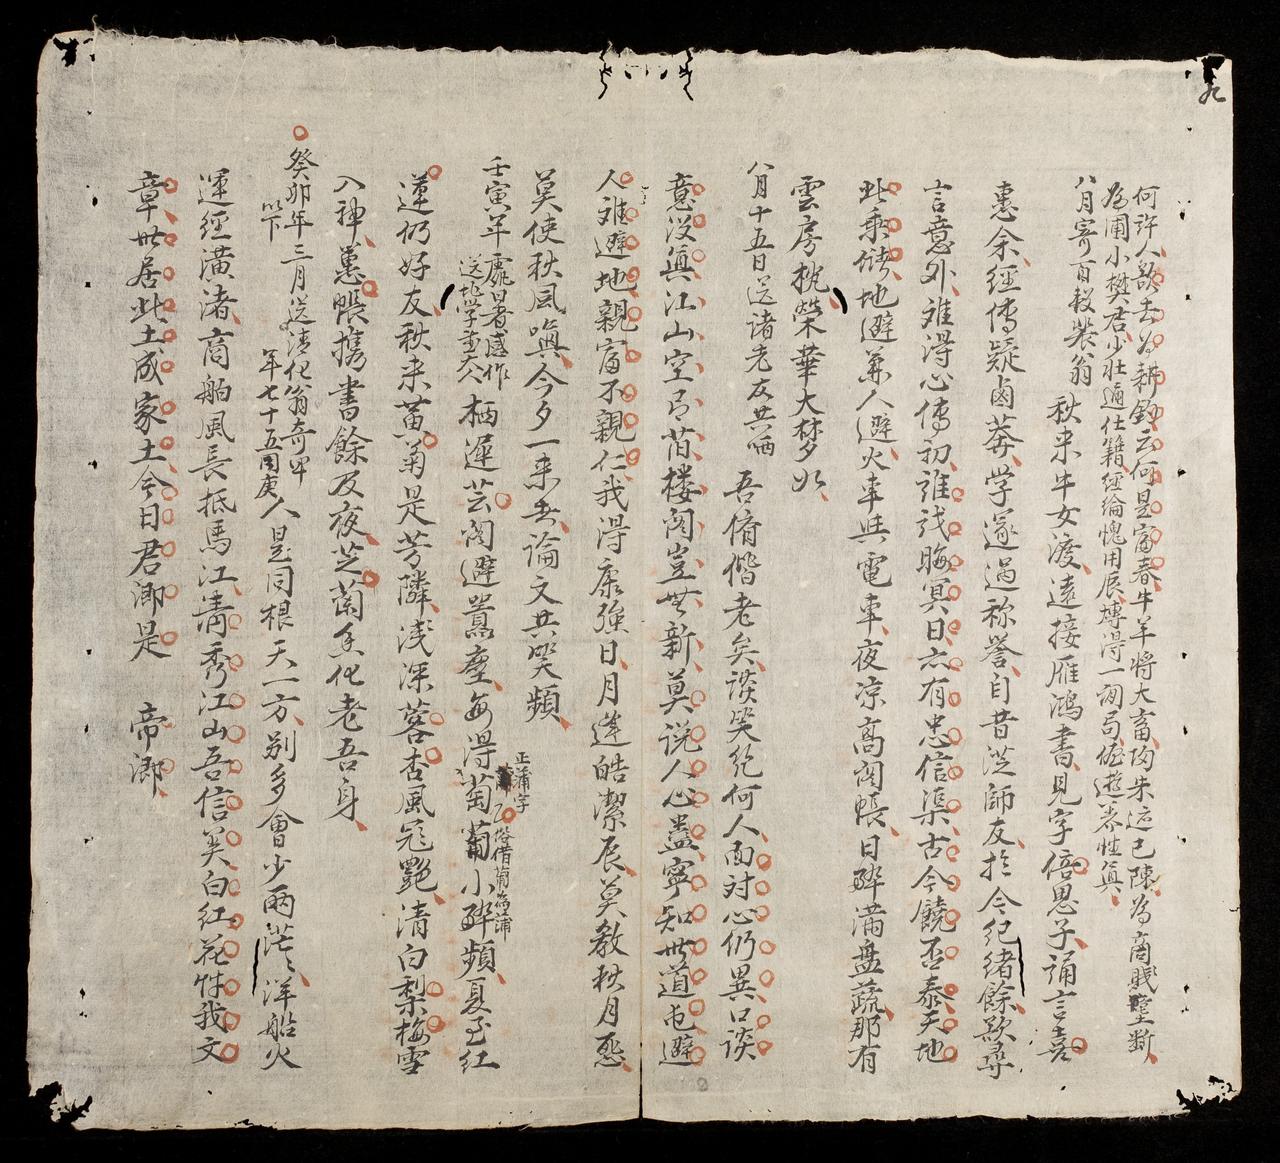 九
何許人欲去為耕釣去何是富春牛羊將大畜陶朱近已陳為商賤壟斷
為圃小樊君少壯通仕籍經綸愧用辰摶得一詞局倦遊养性真
八月寄百穀裴翁 秋来牛女渡遠接雁鴻書見字倍思子誦言喜
惠余經傳疑鹵莽学遂過称譽自昔從師友於今纪緒餘歎尋
言意外难得心傳初誰識晦冥日亦有忠信渠古今饒否泰天地
此乘儲地避兼人避火車與電車夜凉高阁帳日醉满盘蔬那有
雲房枕榮華大梦如
八月十五日送诸老友共哂 吾儕偕老矣談笑纥何人面对心仍異口談
意没真江山空有苩楼阁豈無新莫说人心盡寧知世道屯避
人难避地親富不親仁我得康強日月逢皓潔辰莫教秋月恧
莫使秋風嗔今夕一来去論文共笑頻
壬寅年處暑感作
送地学董大人 栖遲芸阁避嚣塵每得蔔萄小醉頻夏至红
正蒲字
俗借葡為蒲
蓮仍好友秋来黄菊是芳隣浅深菭杏風冠艷清白梨梅雪
入神蕙帳攜書餘及夜芝蘭香化老吾身
癸卯年三月送清化翁奇甲
以下
年七十五同庚 人是同根天一方别多會少兩茫〻洋船火
運經潢渚商舶風長抵馬江清秀江山吾信美白红花性我文
章世居此土成家土今日君鄉是 帝鄉